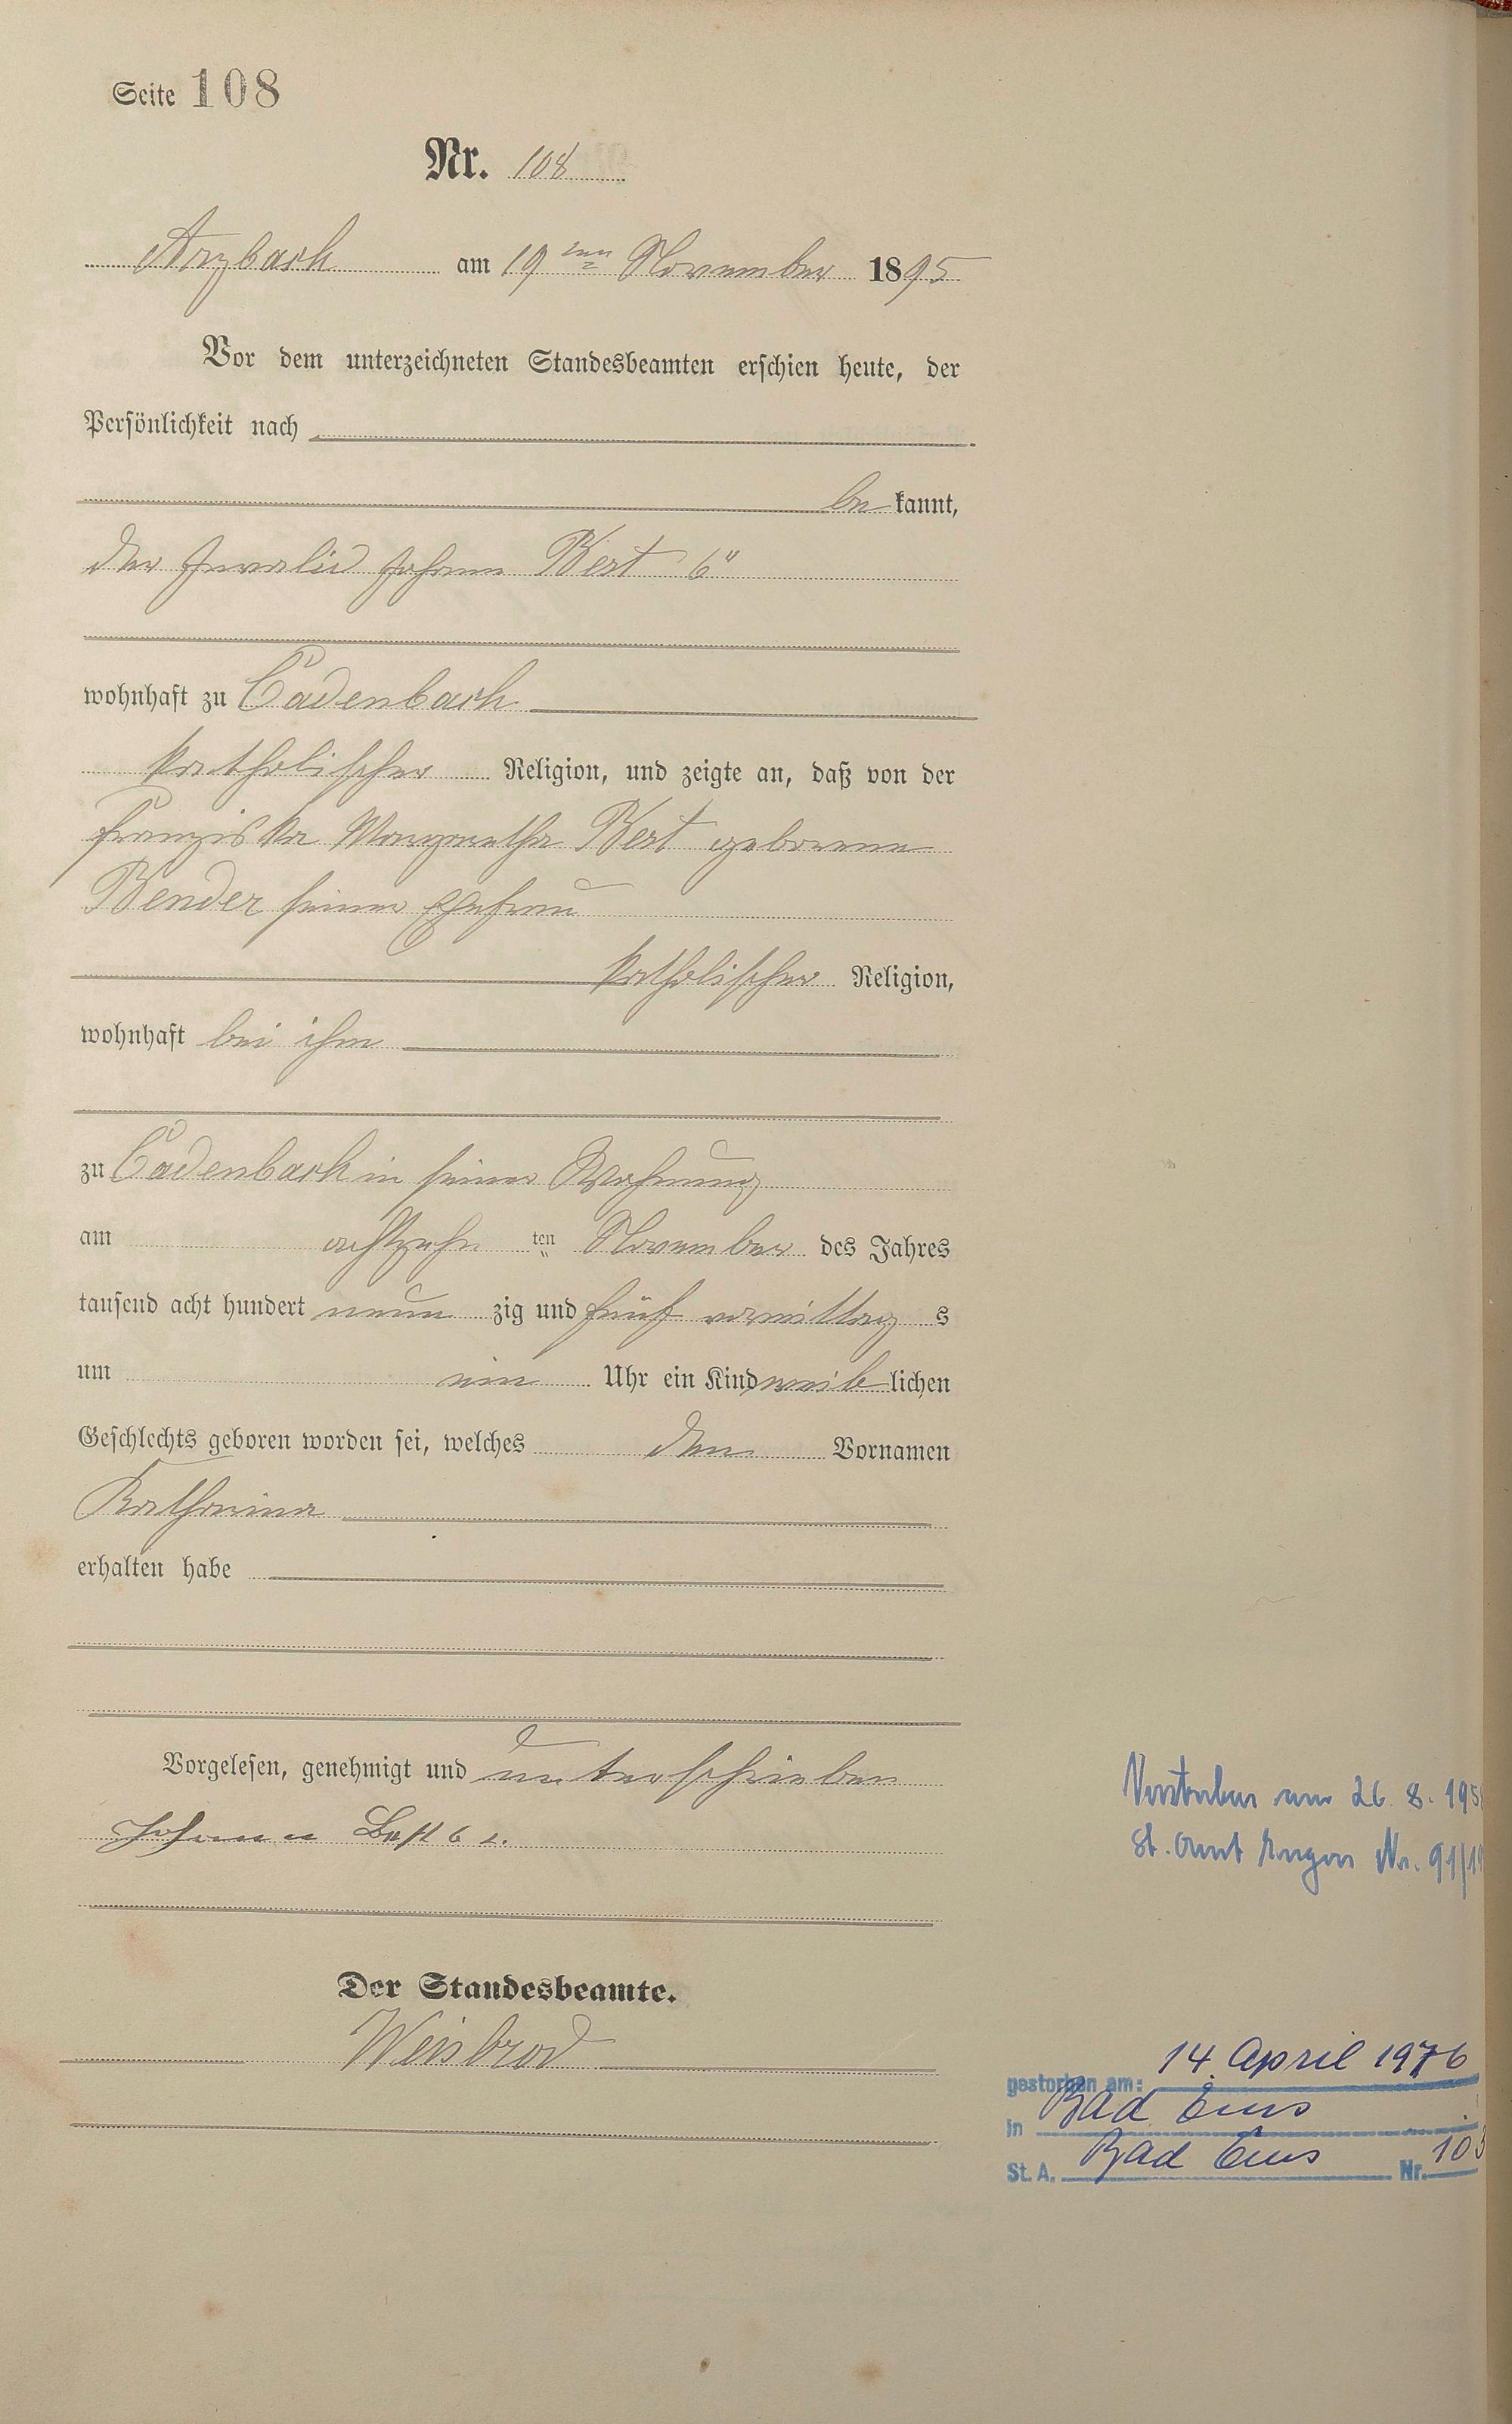 Seite 108
Nr. 108
Arzbach am 19ten November 1895
Vor dem unterzeichneten Standesbeamten erschien heute, der
Persönlichkeit nach
be kannt,
der Invalid Johann Bert 6"
wohnhaft zu Cadenbach
katholischer Religion, und zeigte an, daß von der
Franziska Margaretha Bert geborenen
Bender seiner Ehefrau
katholischer Religion,
wohnhaft bei ihm
zu Cadenbach in seiner Wohnung
am achtzehn ten November des Jahres
tausend acht hundert neun zig und fünf vormittag s
um ein Uhr ein Kind weib lichen
Geschlechts geboren worden sei, welches den Vornamen
Katharina
erhalten habe
Vorgelesen, genehmigt und unterschrieben
Johann Bert 6
Verstorben am 26. 8. 195
St. Amt Nr. 91/19
Der Standesbeamte.
Weisbrod
gestorben am: 14. April 1976
in Bad Ems
St. A. Bad Ems Nr. 103